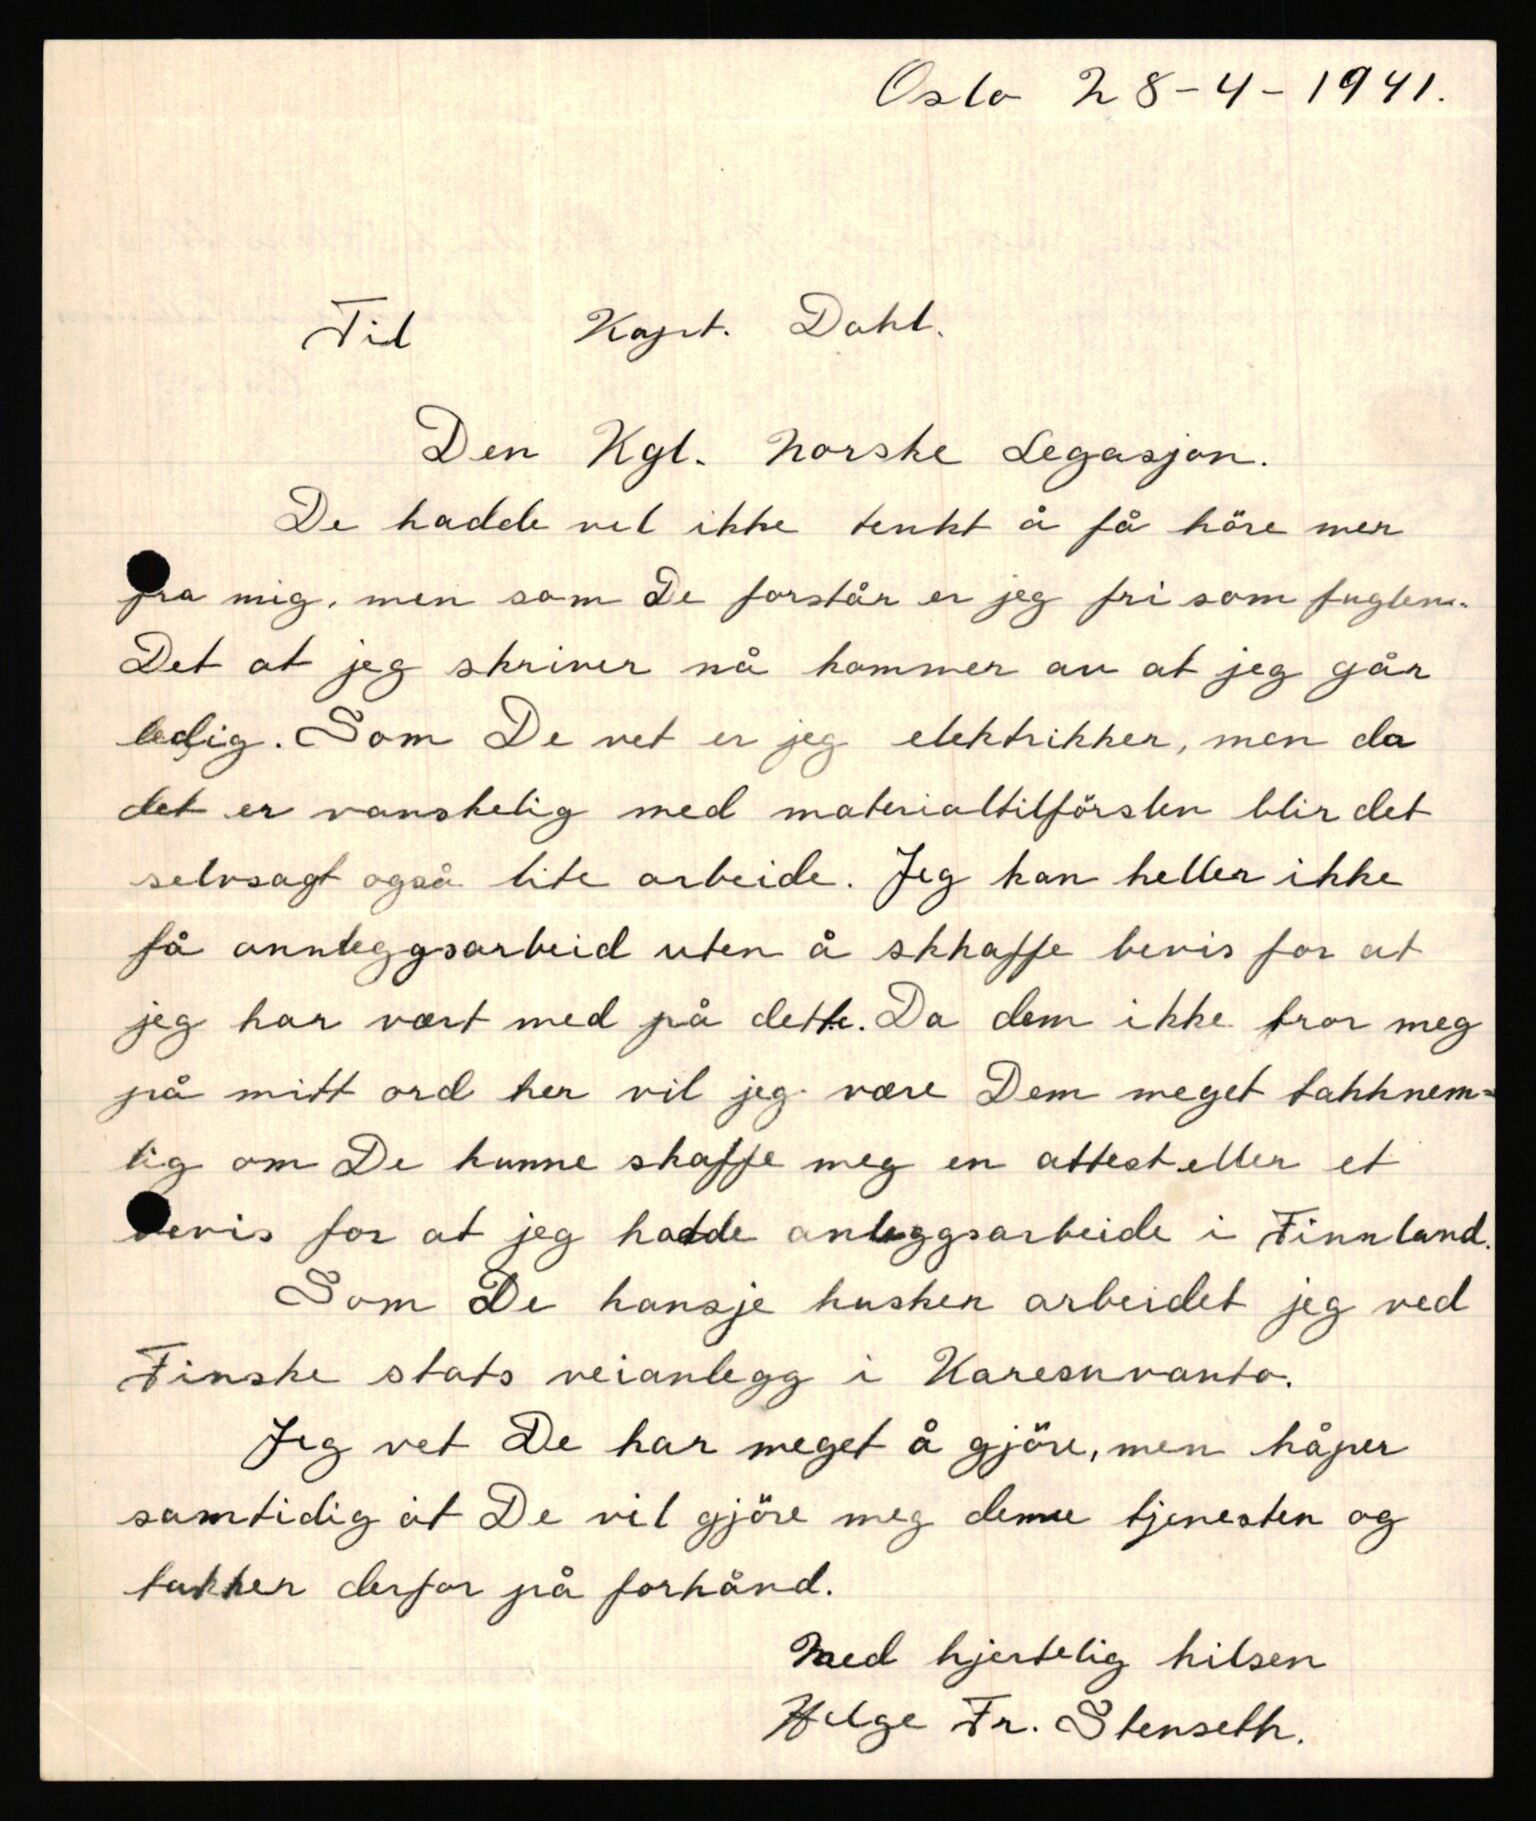 Oslo 28-4-1941.
Til Kapt. Dahl.
Den Kgl. Norske Legasjon.
De hadde vel ikke tenkt å få höre mer
fra mig, men som De forstår er jeg fri som fuglen.
Det at jeg skriver nå kommer av at jeg går
ledig. Som De vet er jeg elektrikker, men da
det er vanskelig med materialtilförslen blir det
selvsagt også lite arbeide. Jeg kan heller ikke
få annleggsarbeid uten å skkaffe bevis for at
jeg har vært med på dette. Da dem ikke tror meg
på mitt ord her vil jeg være Dem meget takknem=
lig om De kunne skaffe meg en attest eller et
bevis for at jeg hadde anleggsarbeide i Finnland.
Som De kansje husker arbeidet jeg ved
Finske stats veianlegg i Karesuvanto.
Jeg vet De har meget å gjöre, men håper
samtidig at De vil gjöre meg denne tjenesten og
takker derfor på forhånd.
Med hjertelig hilsen
Helge Fr. Stenseth.